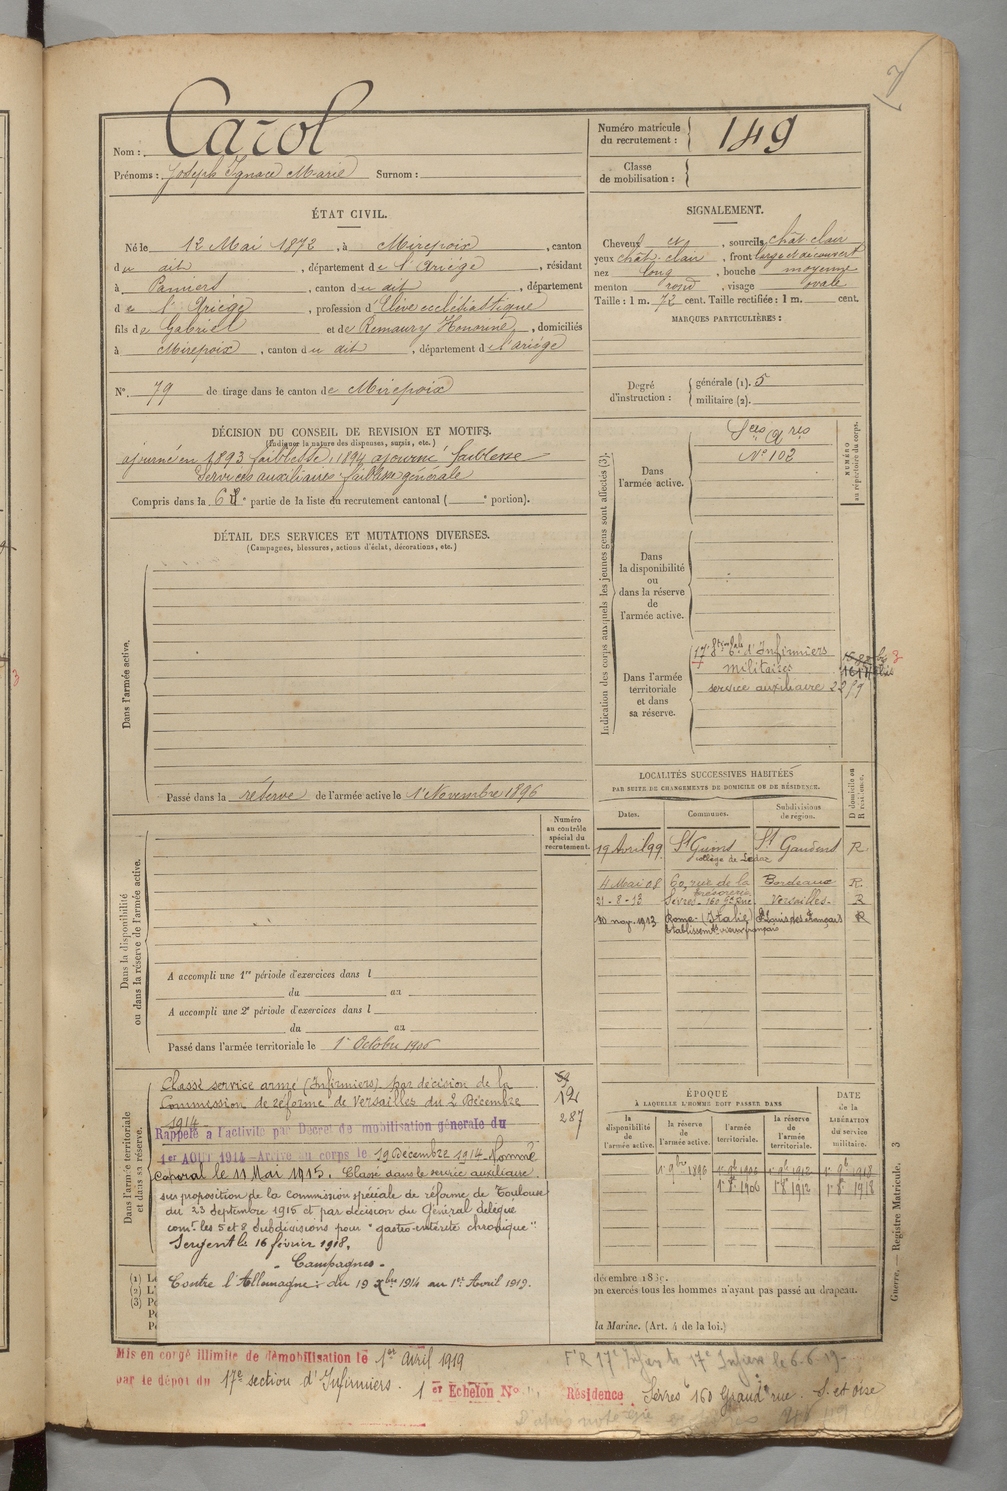 Nom : Carol
Prénoms : Joseph Ignace Marie Surnom :
Numéro matricule du recrutement : 149
Classe de mobilisation :
ÉTAT CIVIL.
Né le 12 Mai 1872, à Mirepoix, canton
du dit, département de l'Ariége, résidant
à Pamiers, canton du dit, département
de l'Ariége, profession d'Elève ecclésiastique
fils de Gabriel et de Remaury Honorine, domiciliés
à Mirepoix, canton du dit, département de l'ariége
N° 79 de tirage dans le canton de Mirepoix
SIGNALEMENT.
Cheveux , sourcils chât clair
yeux chât-clair, front large et découvert
nez long, bouche moyenne
menton rond, visage ovale
Taille : 1 m. 72 cent. Taille rectifiée : 1 m. cent.
MARQUES PARTICULIÈRES :
Degré d'instruction : générale (1). 5
militaire (2).
DÉCISION DU CONSEIL DE REVISION ET MOTIFS.
(Indiquer la nature des dispenses, sursis, etc.)
ajourné en 1893 faiblesse, 1894 ajourné faiblesse
Services auxiliaires faiblesse générale
Compris dans la 6e partie de la liste du recrutement cantonal ( e portion).
DÉTAIL DES SERVICES ET MUTATIONS DIVERSES.
(Campagnes, blessures, actions d'éclat, décorations, etc.)
Dans l'armée active.
Passé dans la réserve de l'armée active le 1er Novembre 1896
Indication des corps auxquels les jeunes gens sont affectés (3).
NUMÉRO au répertoire du corps.
Dans l'armée active.
Sces Ares
N° 102
Dans la disponibilité ou dans la réserve de l'armée active.
Dans l'armée territoriale et dans sa réserve.
17e d'Infirmiers
militaires
service auxiliaire
LOCALITÉS SUCCESSIVES HABITÉES
PAR SUITE DE CHANGEMENTS DE DOMICILE OU DE RÉSIDENCE.
Dates. Communes. Subdivisions de région. D domicile ou R résidence.
19 Avril 99 St Gaudens R
collège de
4 Mai 08 60, rue de la Bordeaux R
21-8-13 Sèvres - 160 Gde Rue Versailles - R
10 nov. 1913 Rome (Italie) St Louis des Français R
Numéro au contrôle spécial du recrutement.
Dans la disponibilité ou dans la réserve de l'armée active.
A accompli une 1re période d'exercices dans l
du au
A accompli une 2e période d'exercices dans l
du au
Passé dans l'armée territoriale le 1er Octobre 1906
Dans l'armée territoriale et dans sa réserve.
Classé service armé (Infirmiers) par décision de la
Commission de réforme de Versailles du 2 Décembre
1914
Rappelé à l'activité par Décret de mobilisation générale du
1er AOUT 1914 - Arrivé au corps le 19 Décembre 1914 - Nommé
Caporal le 11 Mai 1915. Classé dans le service auxiliaire
sur proposition de la Commission spéciale de réforme de Toulouse
du 23 septembre 1916 et par décision du Général délégué
comt les 5 et 8 subdivisions pour "gastro-entérite chronique"
Sergent le 16 février 1918.
- Campagnes -
Contre l'Allemagne : du 19 Xbre 1914 au 1er Avril 1919.
12
287
ÉPOQUE
À LAQUELLE L'HOMME DOIT PASSER DANS
la disponibilité de l'armée active. la réserve de l'armée active. l'armée territoriale. la réserve de l'armée territoriale.
DATE de la LIBÉRATION du service militaire.
1er 9bre 1896 1er 9b 1906 1er 9b 1912 1er 9b 1918
1er 8b 1906 1er 8b 1912 1er 8b 1918
exercés tous les hommes n'ayant pas passé au drapeau.
la Marine. (Art. 4 de la loi.)
Guerre. — Registre Matricule. 3
Mis en congé illimité de démobilisation le 1er Avril 1919
par le dépôt du 17e section d'Infirmiers. 1er Echelon N°
Résidence Sèvres 160 Grande rue. S. et Oise